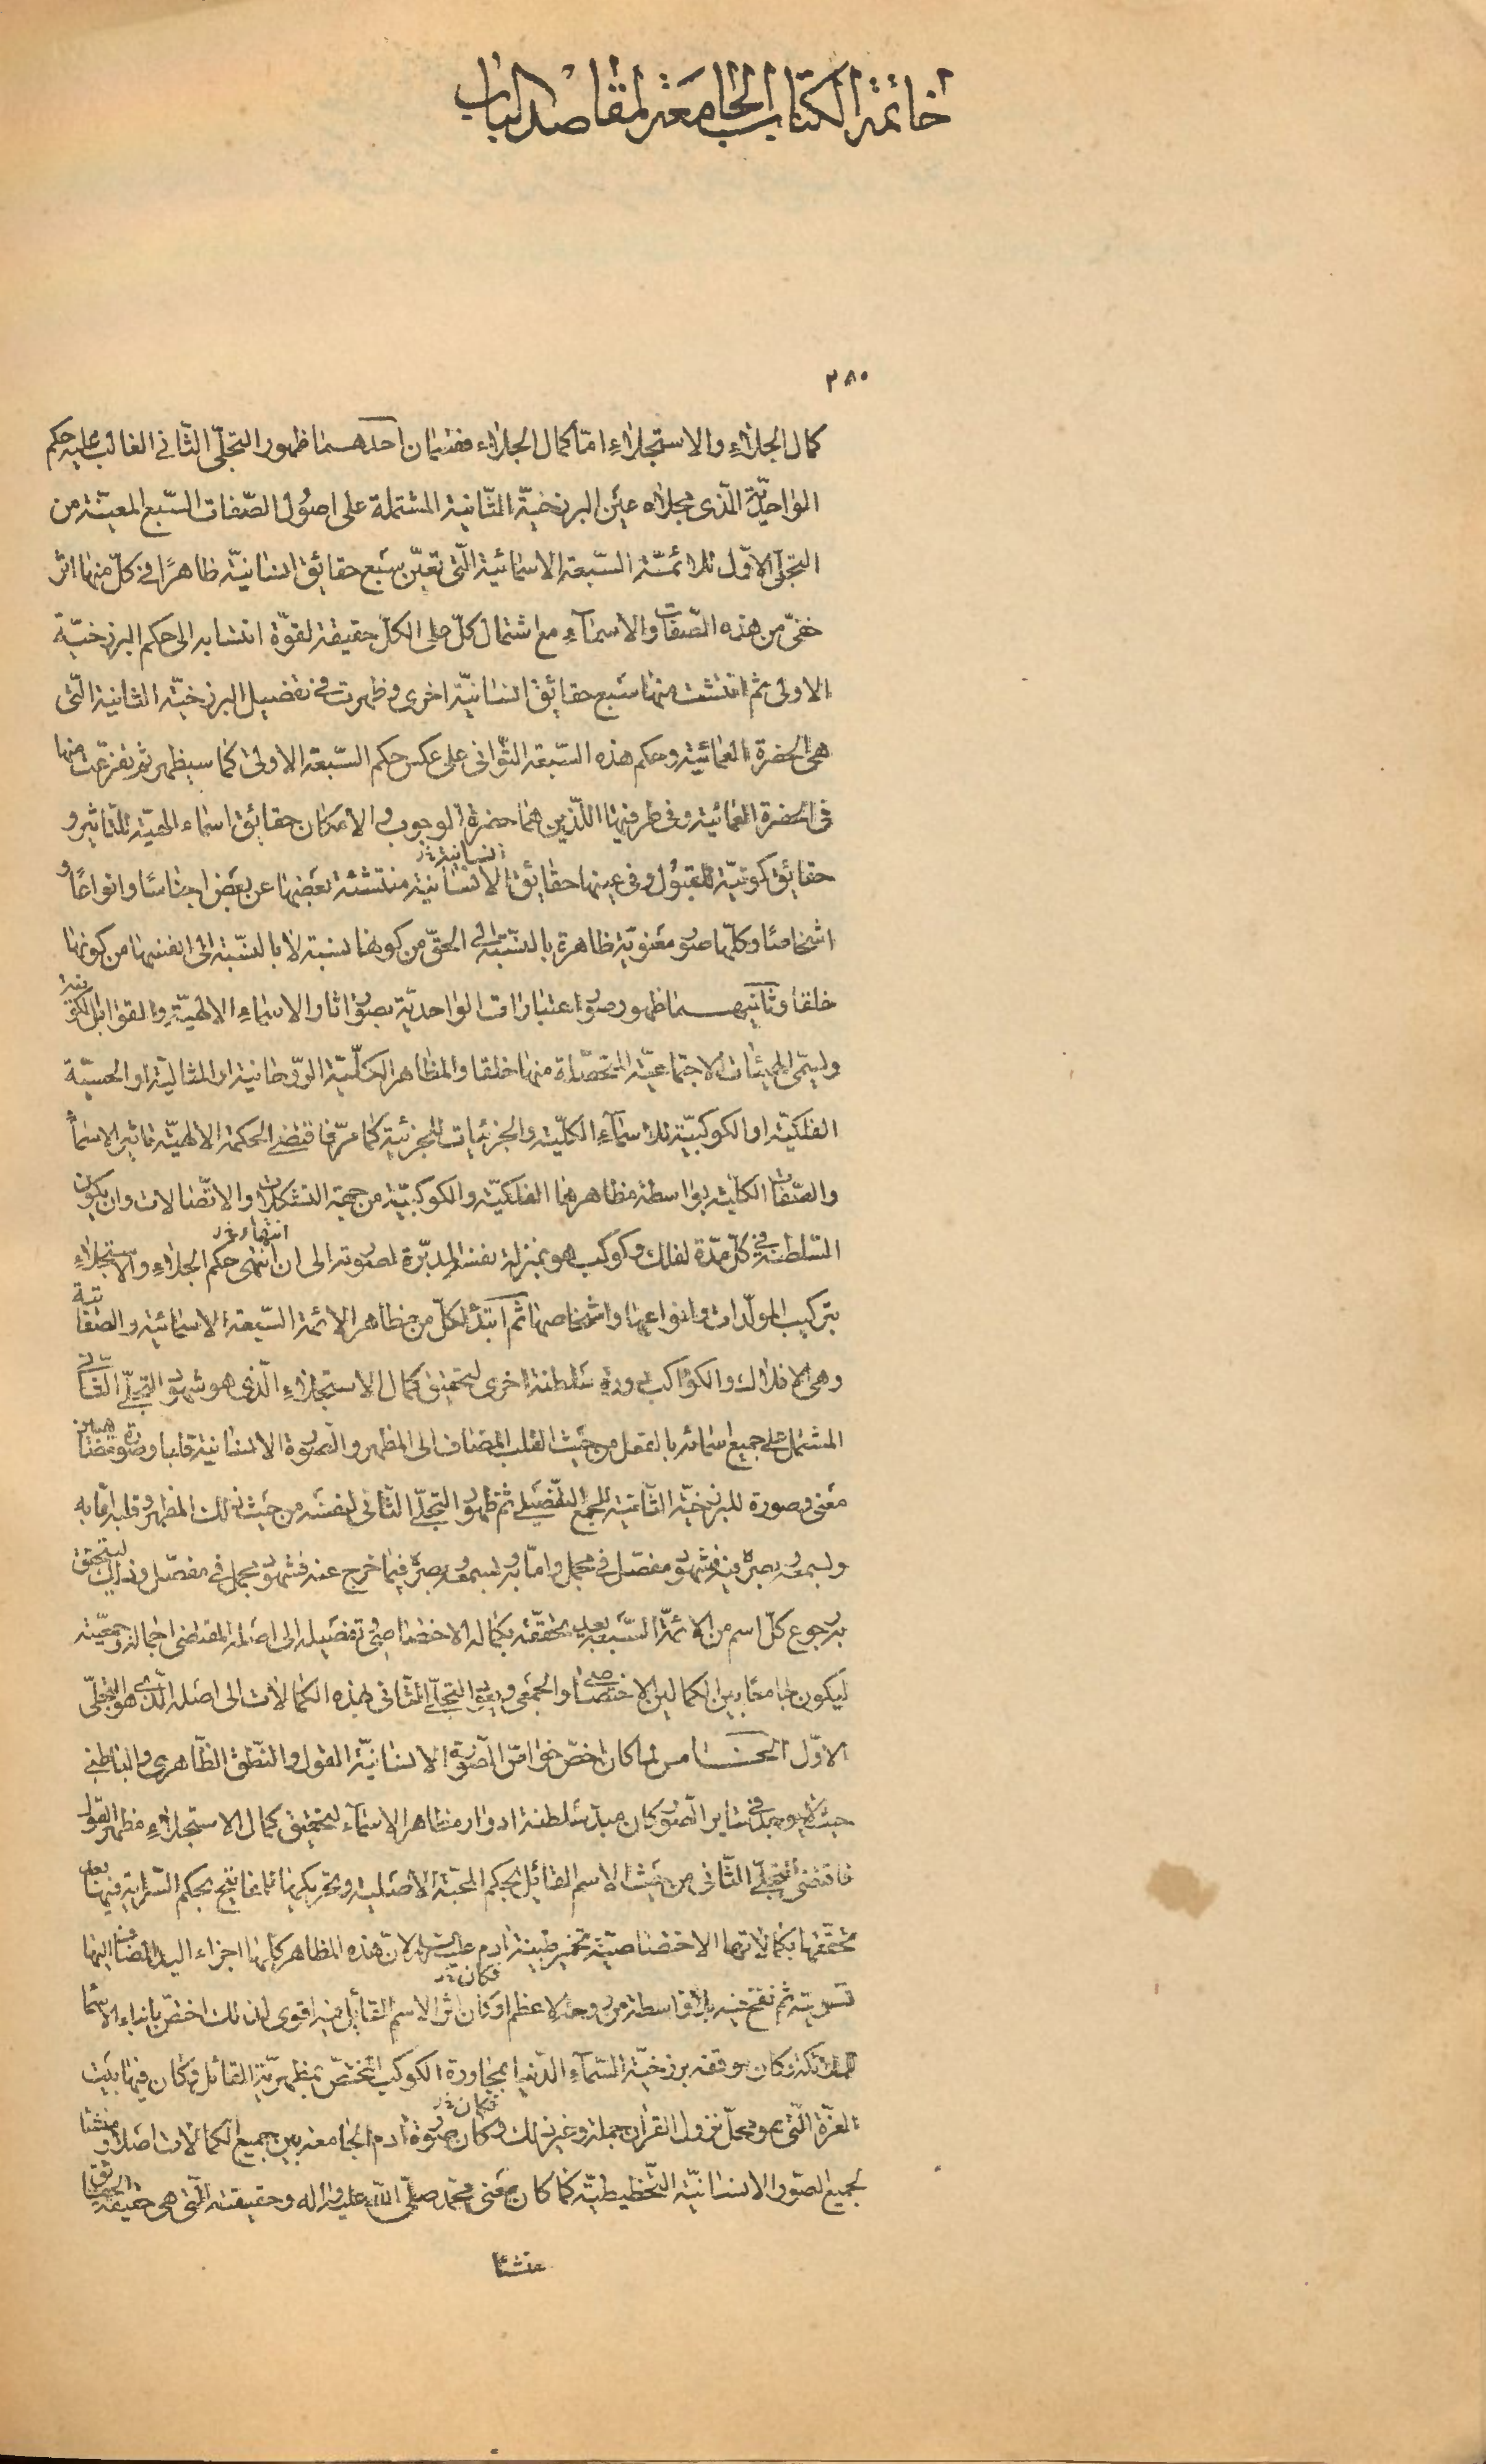 خاتمة الكتاب الجامعة لمقاصد الباب
٢٨٠
كمال الجلاء والاستجلاء امّا كمال الجلاء فقسمان احدهما ظهور التجلّى الثّانى الغالب عليه حكم
الواحديّة الّذى مجلاه عين البرزخيّة الثّانية المشتملة على اصول الصّفات السّبع المعيّنة من
التجلّى الاوّل للائمّة السّبعة الاسمائية الّتى تعيّن بسبع حقائق انسانيّة ظاهرًا فى كلّ منها اثر
خفىّ من هذه الصّفات والاسمآء مع اشتمال كلّ على الكلّ حقيقة لقوّة انتسابه الى حكم البرزخيّة
الاولى ثم انتشت منها سبع حقائق انسانيّة اخرى وظهرت فى تفصيل البرزخيّة الثانية الّتى
هى الحضرة العمائية وحكم هذه السّبعة الثّوانى على عكس حكم السّبعة الاولى كما سيظهر ثم تفرّعت منها
فى الحضرة العمائية وفى طرفيها اللّذين هما حضرة الوجوب والامكان حقائق اسماء الهيّة للتّاثير و
حقائق كونيّة للقبول وفى عينها حقائق الانسانية منتشئة بعضها عن بعض اجناسًا وانواعًا و
انسانية خ‌ر
اشخاصًا وكلّها صور معنويّة ظاهرة بالنّسبة الى الحقّ من كونها نسبة لا بالنسّبة الى انفسها من كونها
خلقا وثانيهما ظهور صور اعتبارات الواحديّة بصور اثار الاسماء الالهيّة والقوابل الكونية
وليسمّى الهيئات الاجتماعيّة المتحصّلة منها خلقا والمظاهر الكلّيّة الرّوحانية او المثاليّة او الحسيّة
الفلكيّة او الكوكبيّة للاسمآء الكلّية والجزئيات للجزئية كما مرّ فاقتضى الحكمة الالهيّة تاثير الاسمآ
والصّفات الكلّية بواسطة مظاهرهما الفلكيّة والكوكبيّة من جهة التشكلات والاتّصالات وان يكون
السّلطنة فى كلّ مدّة لفلك وكوكب هو بمنزلة نفس المدبّرة لصورته الى ان انتهى حكم الجلاء والاستجلاء
انتهاء خ‌ر
بتركيب المولّدات وانواعها واشخاصها ثم ابتدء لكلّ من مظاهر الائمة السّبعة الاسمائية والصّفاتية
وهى الافلاك والكواكب دورة سلطنة اخرى لتحقيق كمال الاستجلاء الّذى هو شهود التجلّى الثّانى
المشتمل على جميع اسمائه بالفعل من حيث القلب المضاف الى المظهر والصورة الانسانية قلبا وصورة
معنى وصورة للبرزخيّة الثّانية للجمع التفصيلى ثم ظهور التجلّى الثانى لنفسه من حيث ذلك المظهر وقلبه امّا به
وبسمعه وبصره فيه فشهود مفصّل فى مجمل وامّا به وبسمعه وبصره فيما خرج عنه فشهود مجمل فى مفصّل وذلك ليتحقق
برجوع كلّ اسم من الائمّة السّبعة بعد تحقّقه بكماله الاختصاصى فى تفصيله الى اصله المقتضى اجماله وجمعيّته
ليكون جامعًا بين الكمالين الاختصاصى والجمعى ويعود التجلّى الثانى بهذه الكمالات الى اصله الّذى هو التجلّى
الاوّل الخامس لما كان اخصّ خواصّ الصّورة الانسانيّة القول والنّطق الظّاهرى والباطنى
حيث لا يوجد فى سائر الصّور كان مبدء سلطنة ادوار مظاهر الاسمآء لتحقيق كمال الاستجلاء مظهر القول
فاقتضى التجلّى الثّانى من حيث الاسم القائل بحكم المحبّة الاصليّة وتحريكها باعثا فانتج بحكم السّراية فيها بعد
تحقّقها بكمالاتها الاختصاصيّة تخمير طينة ادم عليه السلام لانّ هذه المظاهر كلّها اجزاء اليد المضاف اليها
تسويته ثم نفخ فيه بلا واسطة من روحه الاعظم او كان اثر الاسم القائل فيه اقوى لذلك اختصّ بانباء الاسما
فكان خ‌ر
للملائكة وكان موقفه برزخيّة السّمآء الدّنيا بمجاورة الكوكب المختصّ بمظهريّة القائل وكان فيها بيت
العزّة الّتى هو محلّ نزول القرآن جملة وغير ذلك وكان صورة ادم الجامعة بين جميع الكمالات اصلا ومنشئا
فكان خ‌ر
لجميع الصّور الانسانيّة التّخطيطيّة كما كان معنى محمّد صلّى اللّه عليه واله وحقيقته الّتى هى حقيقة الحقايق
منشئا